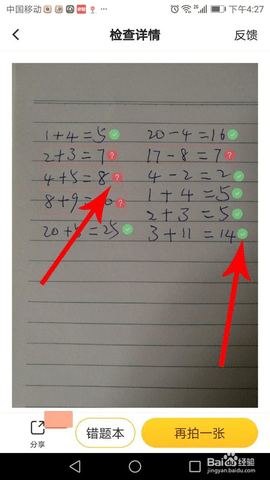 中国移动 下午4:27
检查详情 反馈
1+4=5 20-4=16
2+3=7 17-8=7
4+5=8 4-2=2
8+9= 1+4=5
2+3=5
20+5=25 3+11=14
分享 错题本 再拍一张
Baidu 经验
jingyan.baidu.com